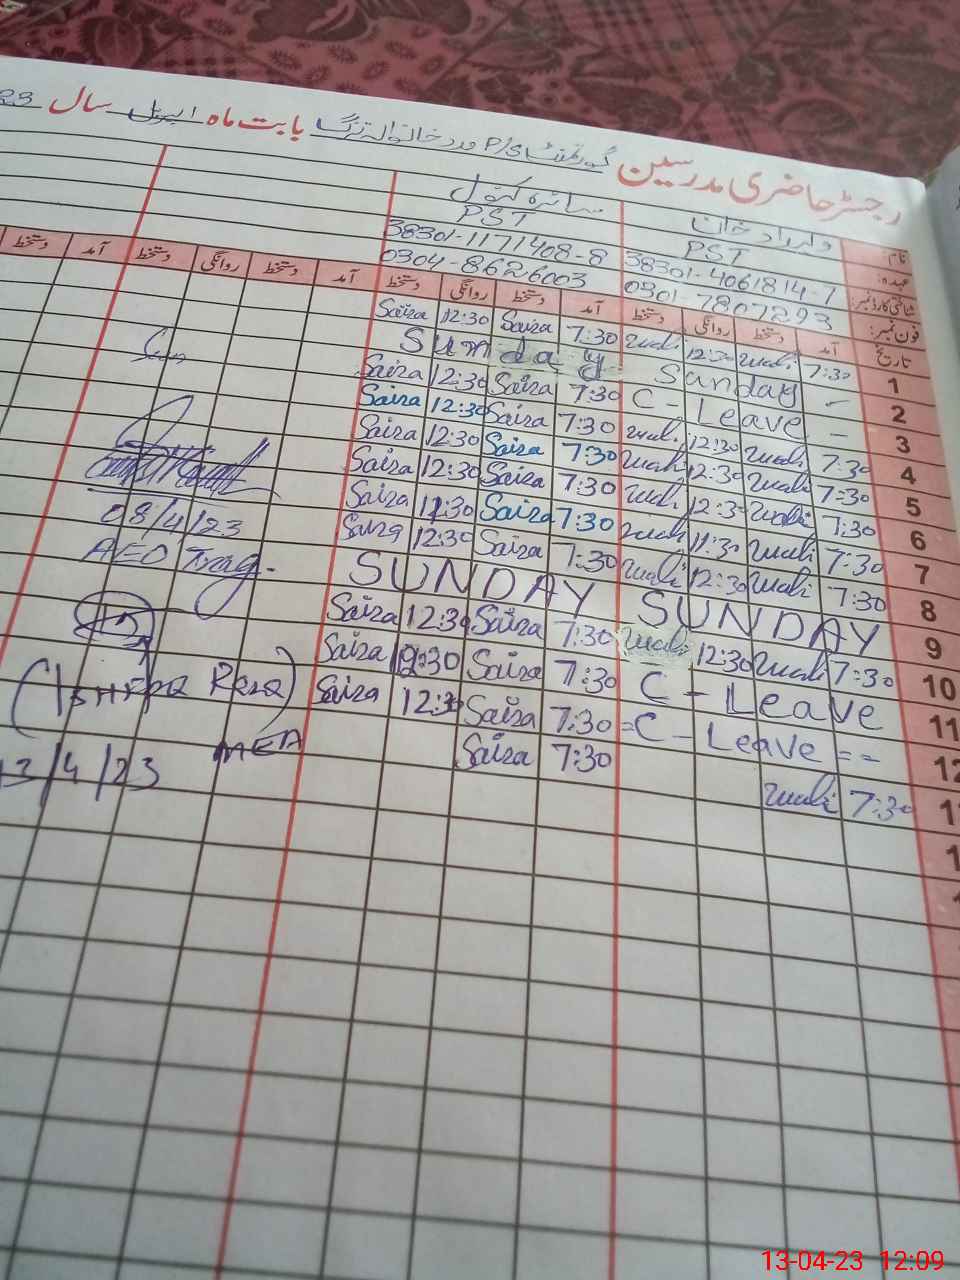 رجسٹر حاضری مدرسین گورنمنٹ P/S ورد خانوالہ ترگ بابت ماہ اپریل سال 23
نام ولی داد خان سائرہ کنول
عہدہ: PST PST
شناختی کارڈ نمبر: 38301-4061814-7 38301-1171408-8
فون نمبر: 0301-7807293 0304-8626003
تاریخ آمد دستخط روانگی دستخط آمد دستخط روانگی دستخط آمد دستخط روانگی دستخط آمد دستخط
1 7:30 Wali 12:30 Wali 7:30 Saiza 12:30 Saiza
2 - Sunday Sunday
3 - C-Leave 7:30 Saiza 12:30 Saiza
4 7:30 Wali 12:30 Wali 7:30 Saiza 12:30 Saiza
5 7:30 Wali 12:30 Wali 7:30 Saiza 12:30 Saiza
6 7:30 Wali 12:30 Wali 7:30 Saiza 12:30 Saiza
7 7:30 Wali 11:30 Wali 7:30 Saiza 11:30 Saiza
8 7:30 Wali 12:30 Wali 7:30 Saiza 12:30 Saiza
9 SUNDAY SUNDAY
10 7:30 Wali 12:30 Wali 7:30 Saiza 12:30 Saiza
11 C-Leave 7:30 Saiza 12:30 Saiza
12 == C-Leave = 7:30 Saiza 12:30 Saiza
7:30 Wali 7:30 Saiza
08/4/23
AEO Trag.
(ISHFAQ Raza)
MEA
13/4/23
13-04-23 12:09